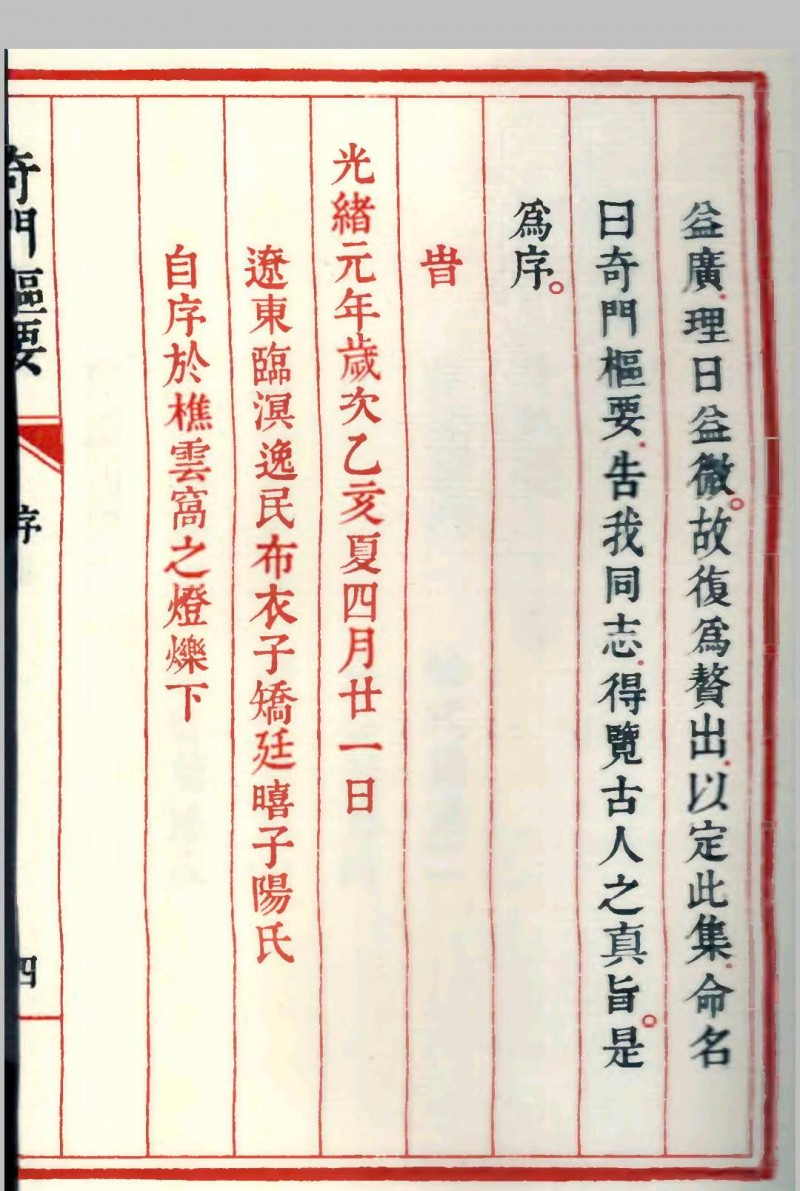 益廣.理日益微。故復爲贅出.以定此集.命名
曰奇門樞要.告我同志.得覽古人之真旨。是
爲序。
旹
光緒元年歲次乙亥夏四月廿一日
遼東臨溟逸民布衣子矯廷暿子陽氏
自序於樵雲窩之燈爍下
奇門樞要
序
四